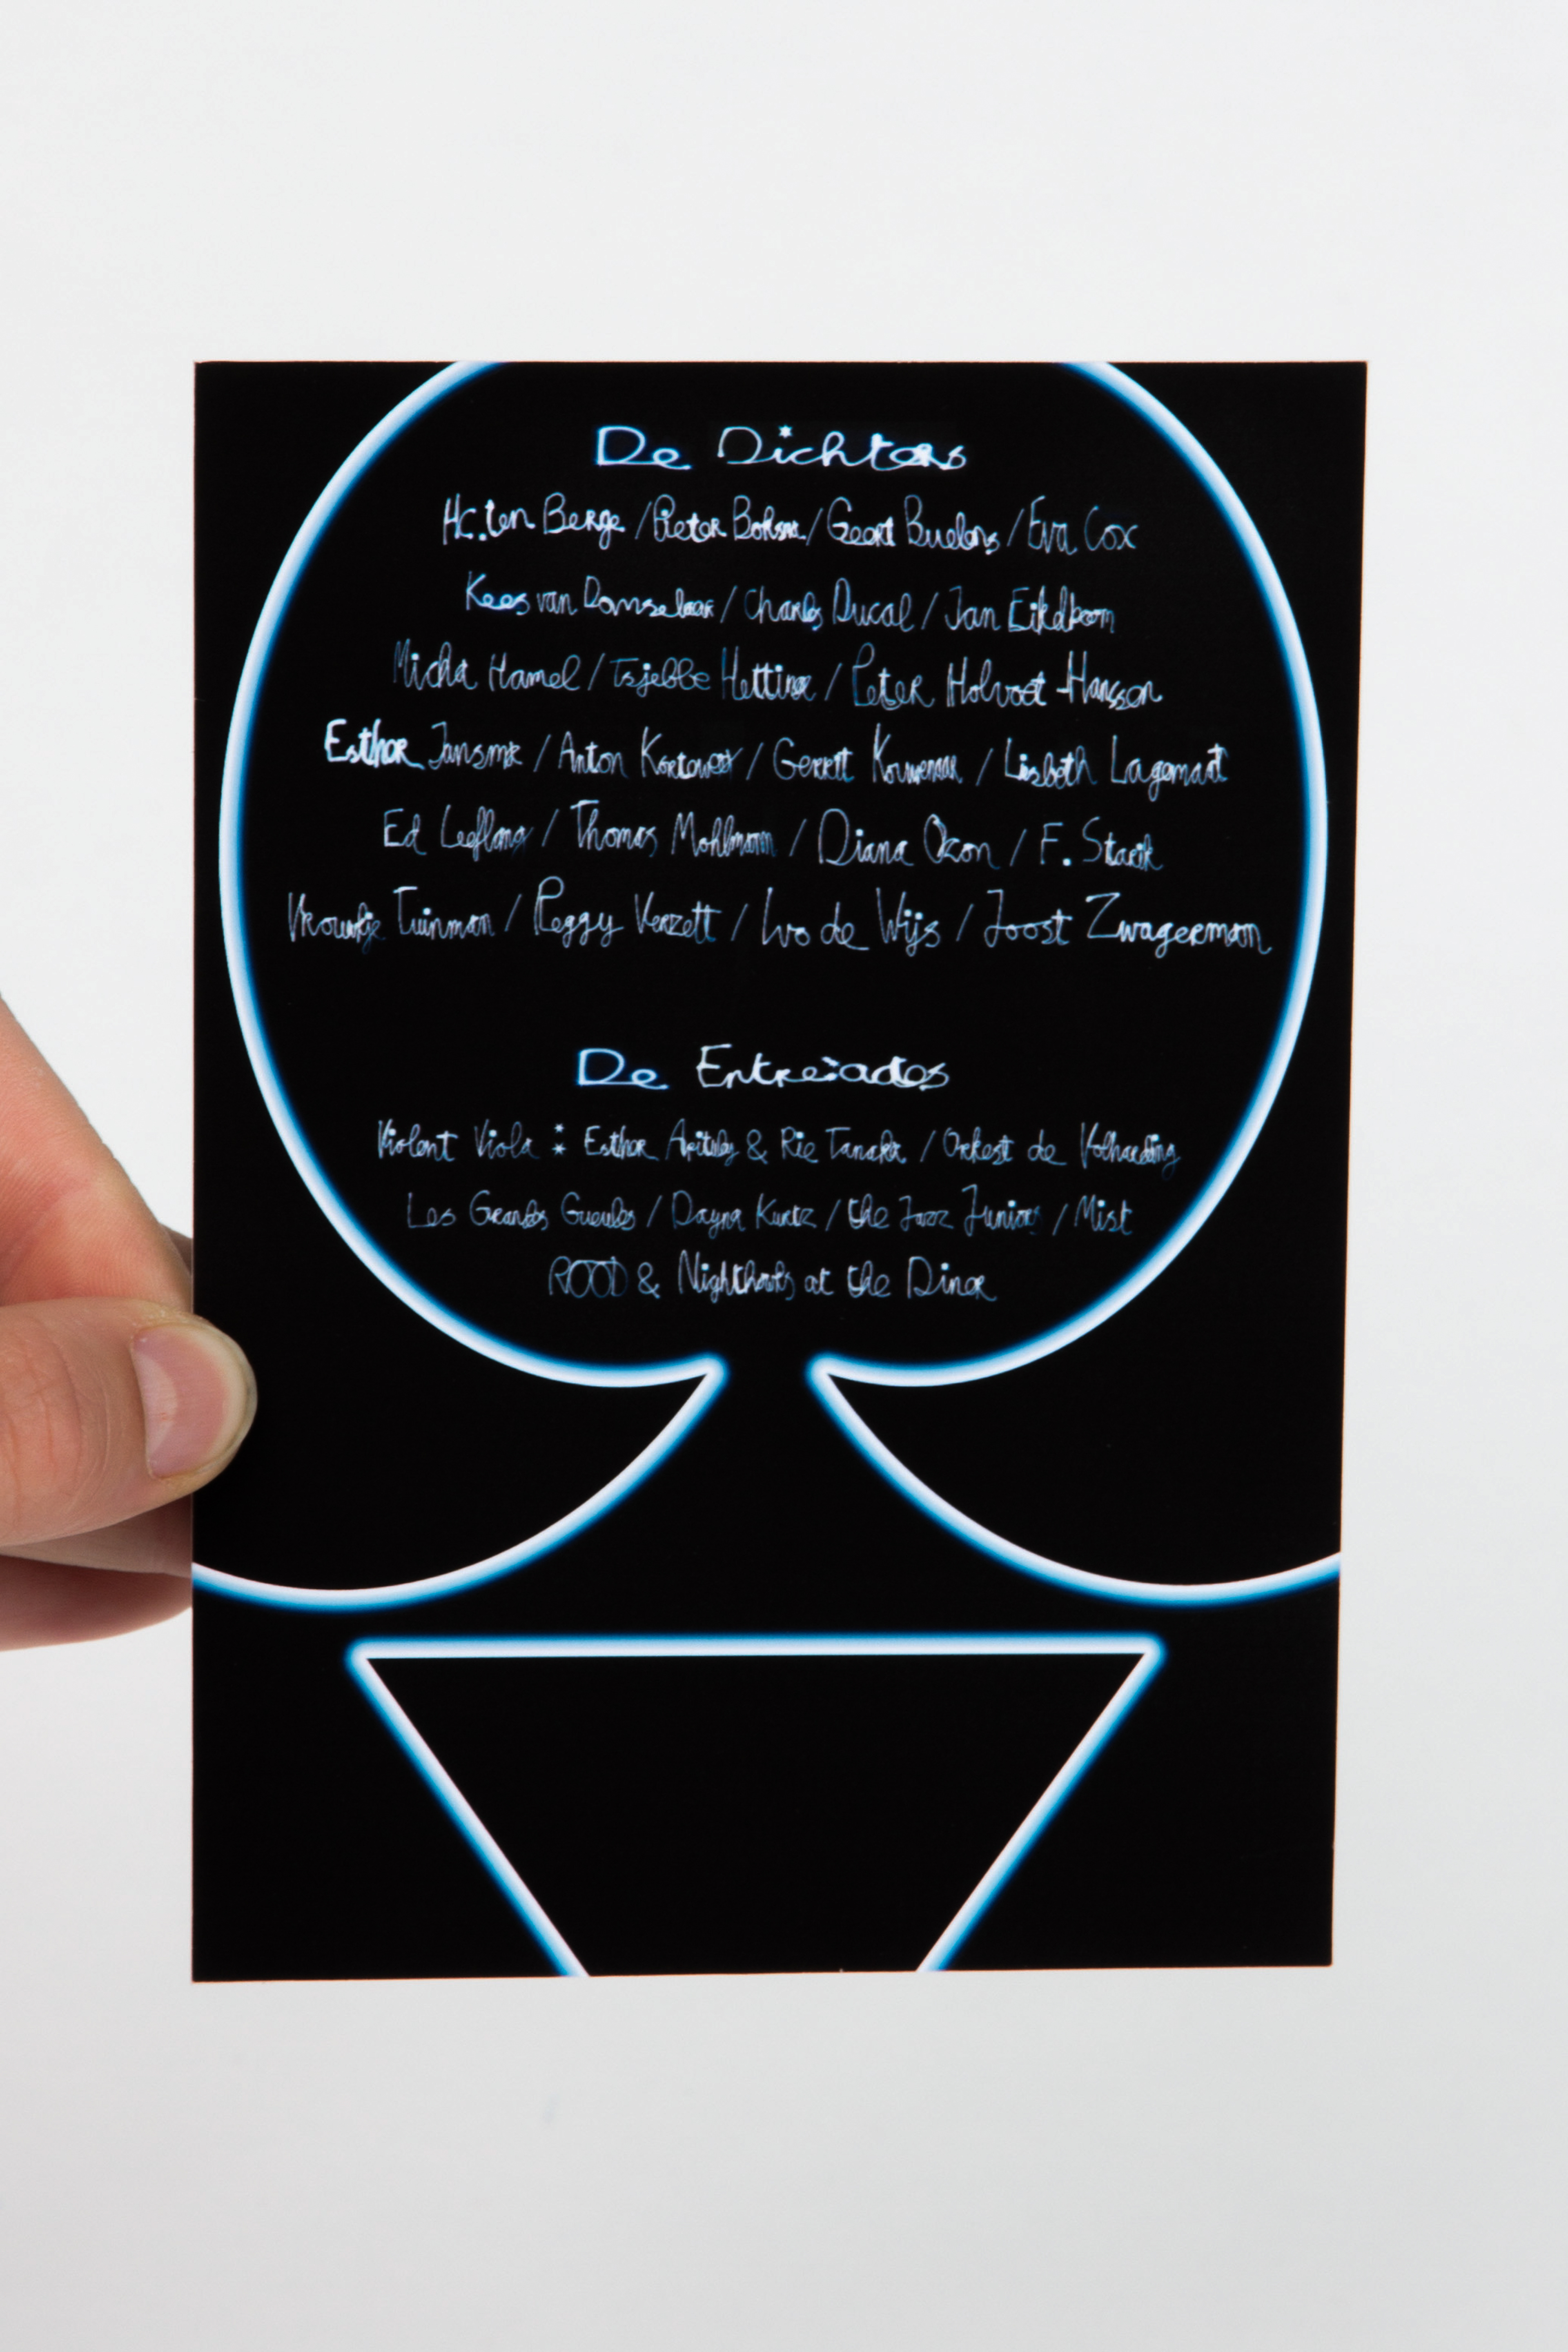 De Dichters
H.C. ten Berge / Pieter Boskma / Geert Buelens / Eva Cox
Kees van Domselaar / Charles Ducal / Jan Eijkelboom
Micha Hamel / Tsjebbe Hettinga / Peter Holvoet-Hanssen
Esther Jansma / Anton Korteweg / Gerrit Kouwenaar / Liesbeth Lagemaat
Ed Leeflang / Thomas Möhlmann / Diana Ozon / F. Starik
Vrouwkje Tuinman / Peggy Verzett / Ivo de Wijs / Joost Zwagerman
De Entre'actes
Violent Viola : Esther Apituley & Rie Tanaka / Orkest de Volharding
Les Grandes Gueules / Dayna Kurtz / the Jazz Juniors / Mist
ROOD & Nighthawks at the Diner